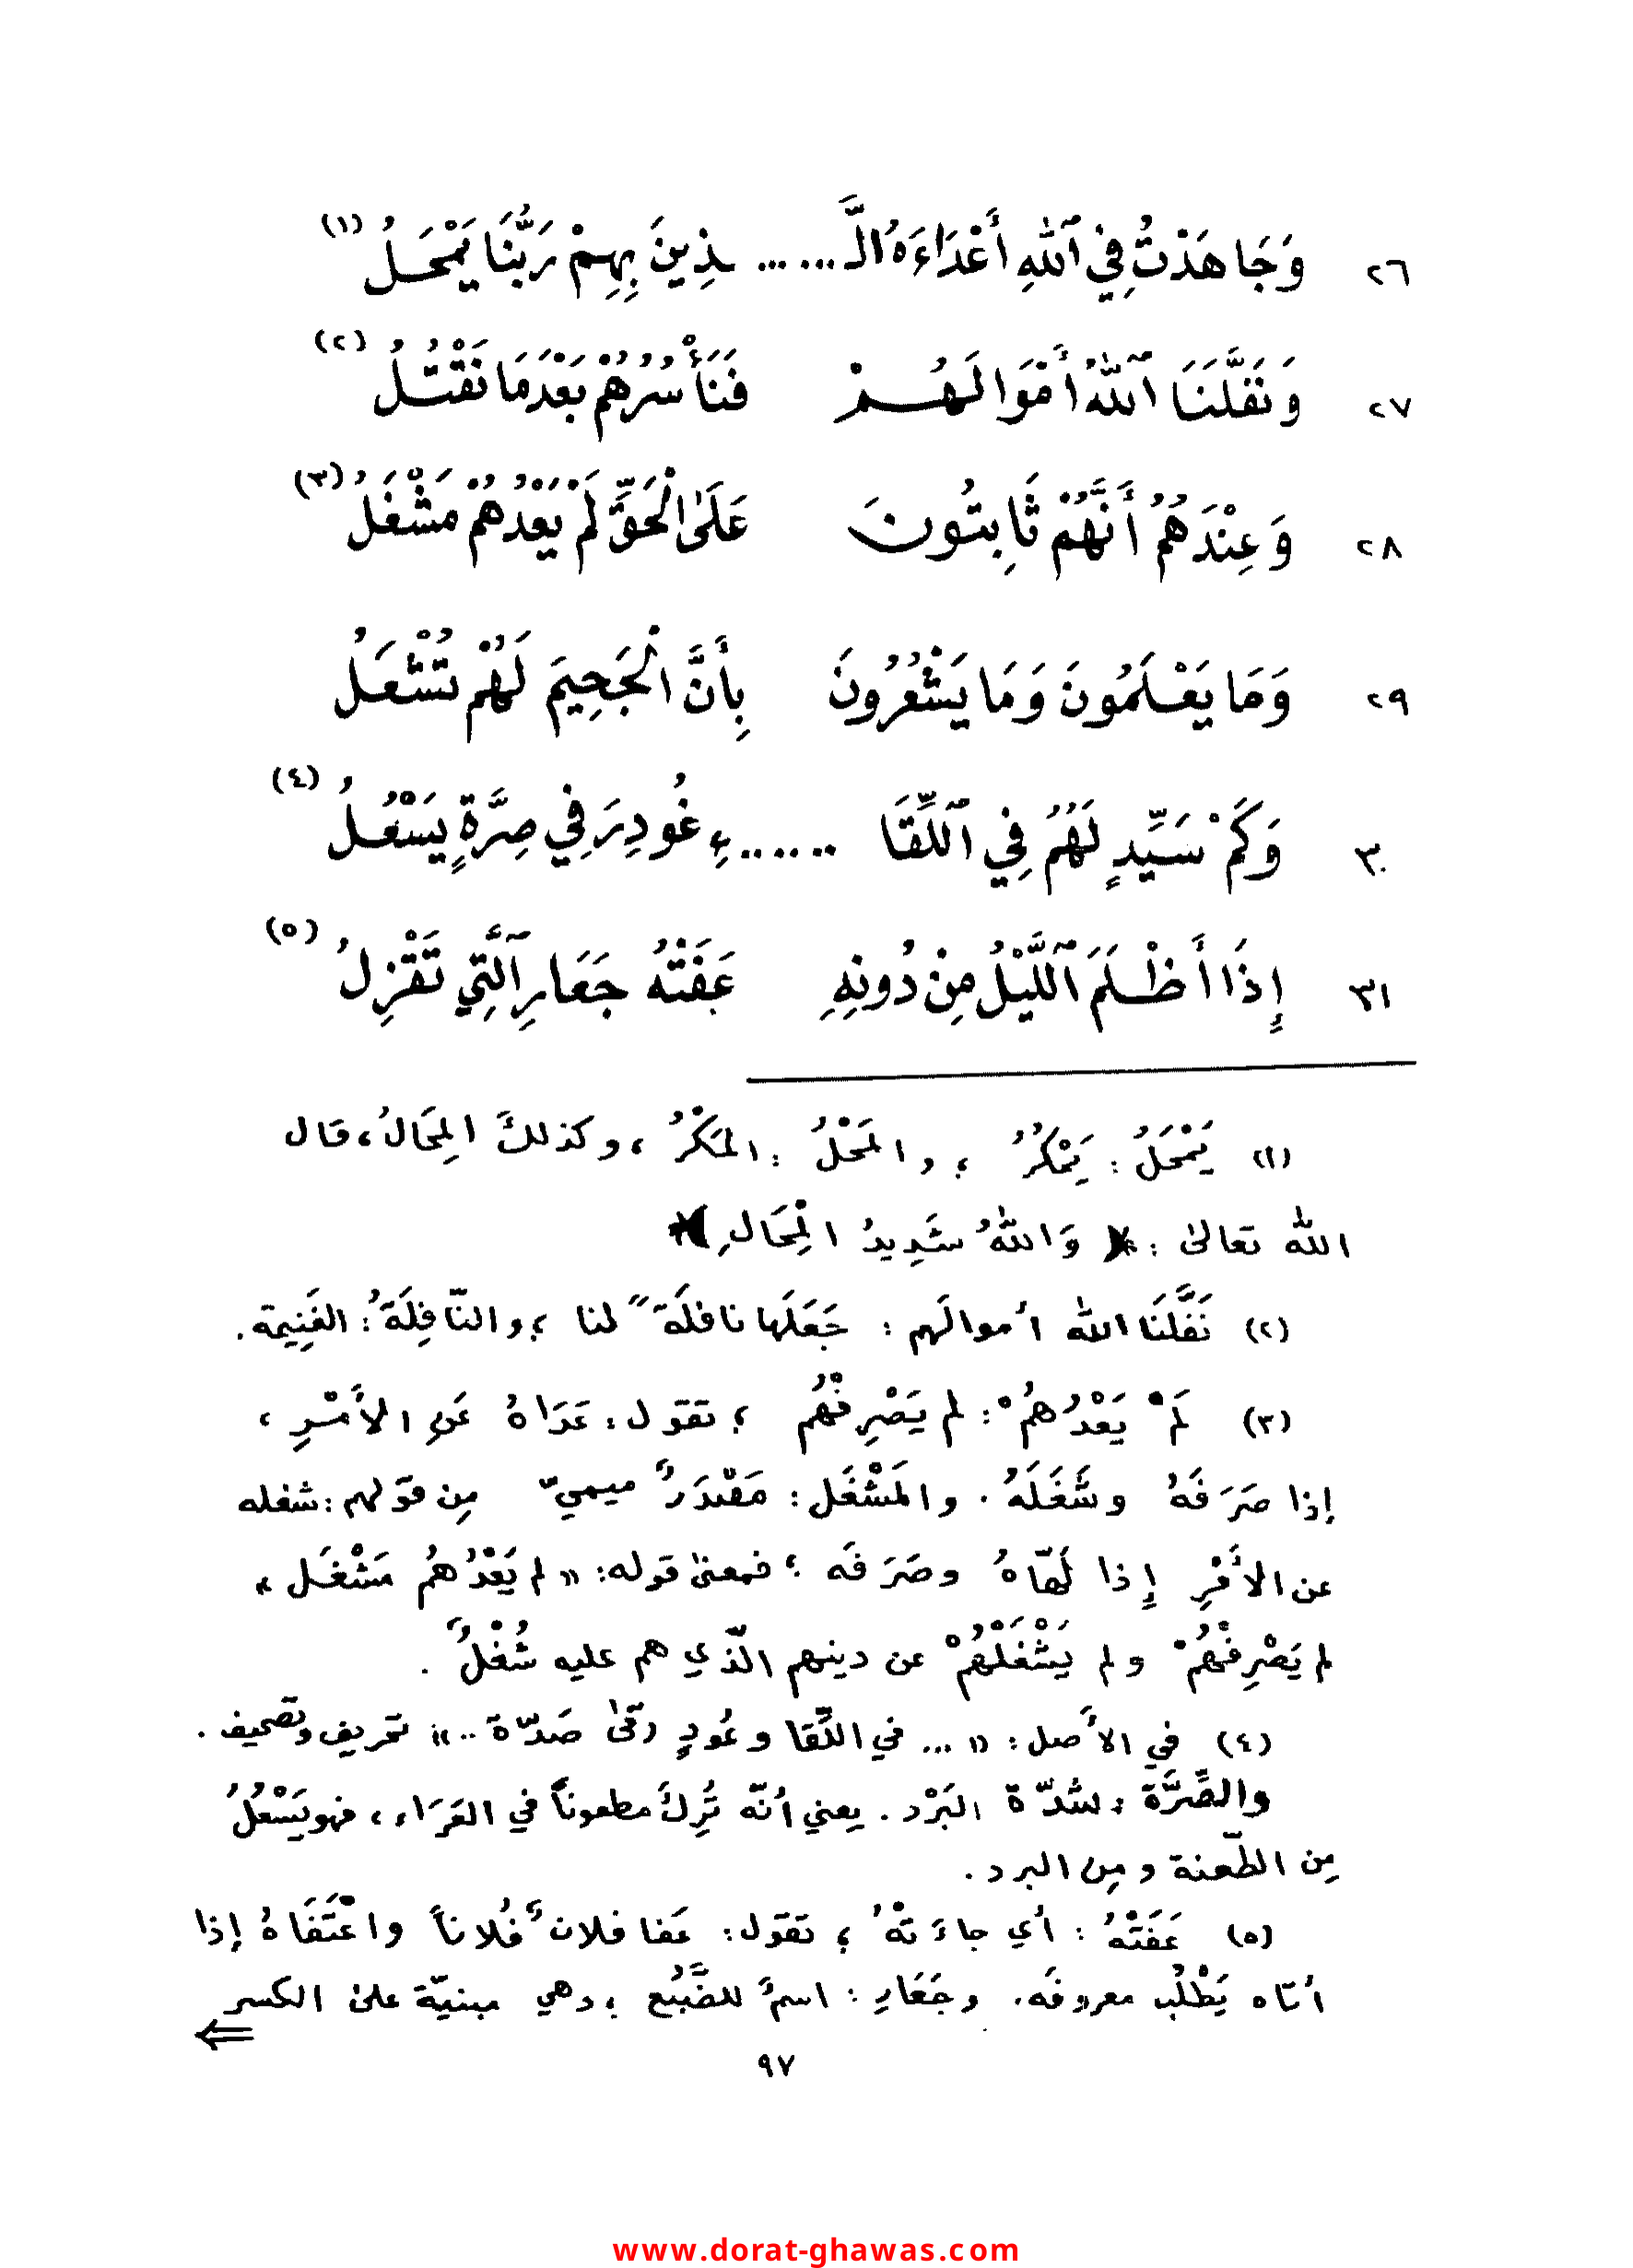 ٢٦ وَجَاهَدْتُ فِي ٱللهِ أَعْدَاءَهُ الَّـ...... ـذِينَ بِهِمْ رَبُّنَا يَمْحَلُ (١)
٢٧ وَنَفَّلَنَا ٱللهُ أَمْوَالَهُمْ فَنَأْسُرُهُمْ بَعْدَمَا نَقْتُلُ (٢)
٢٨ وَعِنْدَهُمُ أَنَّهُمْ ثَابِتُونَ عَلَى الْحَقِّ لَمْ يَعْدُهُمْ مَشْغَلُ (٣)
٢٩ وَمَا يَعْلَمُونَ وَمَا يَشْعُرُونَ بِأَنَّ الْجَحِيمَ لَهُمْ تُشْعَلُ
٣٠ وَكَمْ سَيِّدٍ لَهُمُ فِي ٱللِّقَا ......ءِ غُودِرَ فِي صِرَّةٍ يَسْعُلُ (٤)
٣١ إِذَا أَظْلَمَ ٱللَّيْلُ مِنْ دُونِهِ عَفَتْهُ جَعَارِ ٱلَّتِي تَقْزِلُ (٥)
(١) يَمْحَلُ : يَمْكُرُ ؛ والمَحْلُ : المَكْرُ ، وكذلكَ المِحَالُ ، قال
الله تعالى : ﴿ وَاللهُ شَدِيدُ الْمِحَالِ ﴾
(٢) نَفَّلَنَا الله أموالَهم : جَعَلَها نافلَةً لنا ؛ والنّافِلَةُ : الغَنِيمة .
(٣) لَمْ يَعْدُهُمْ : لم يَصْرِفْهُم ؛ تقول : عَدَاهُ عَنِ الأَمْرِ ،
إذا صَرَفَهُ وشَغَلَهُ . والمَشْغَل : مَصْدَرٌ ميميّ مِن قولهم : شغله
عن الأَمْرِ إِذا لَهّاهُ وصَرَفَه ؛ فمعنى قوله : « لم يَعْدُهُم مَشْغَل »
لم يَصْرِفْهُمْ ولم يَشْغَلْهُمْ عن دينهم الّذي هم عليه شُغْلٌ .
(٤) في الأَصل : « ... في اللِّقا وعُودٍ رقى صَدّة .. » تحريف وتصحيف .
والصِّرَّة : شدّة البَرْد . يعني أنّه تُرِكَ مطعوناً في العَرَاء ، فهو يَسْعُلُ
مِن الطّعنة ومِن البرد .
(٥) عَفَتْهُ : أي جاءَتْهُ ؛ تقول : عَفا فلانٌ فُلاناً واعْتَفَاهُ إذا
أتاه يَطْلُب معروفَه . وجَعَارِ : اسمٌ للضَّبُع ؛ وهي مبنيّة على الكسر
⇐
٩٧
www.dorat-ghawas.com